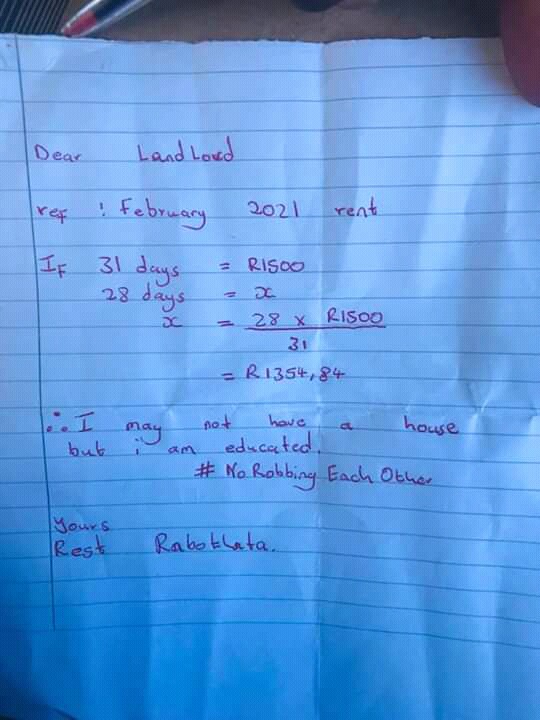 Dear Landlord
ref : February 2021 rent
If 31 days = R1500
28 days = x
x = 28 x R1500
31
= R1354,84
∴ I may not have a house
but i am educated.
# No Robbing Each Other
Yours
Rest Rabothata.